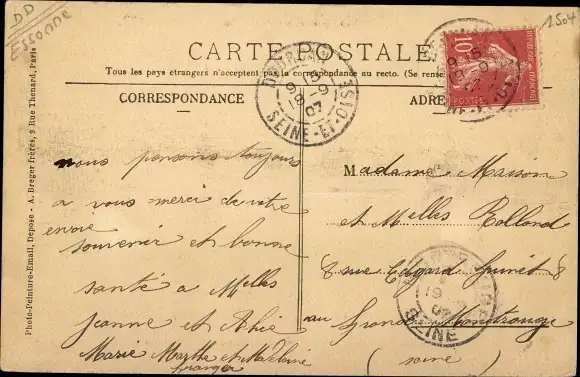 DD
Essonne
1504
CARTE POSTALE
Tous les pays étrangers n'acceptent pas la correspondance au recto. (Se rense
CORRESPONDANCE
ADRE
Photo-Peinture-Email, Déposé - A. Breger frères, 9 Rue Thenard, Paris
DOURDAN
9 15
18 -9
07
SEINE-ET-OISE
10
REPUBLIQUE FRANÇAISE
nous pensons toujours
a vous merci de votre
envoie
souvenir et bonne
santé a Melles
Jeanne et
Marie Marthe et Madelaine
Madame Maison
et Melles Rolland
8 rue Edgard Quinet 8
au Grand Montrouge
(seine)
MONTROUGE
19
07
SEINE